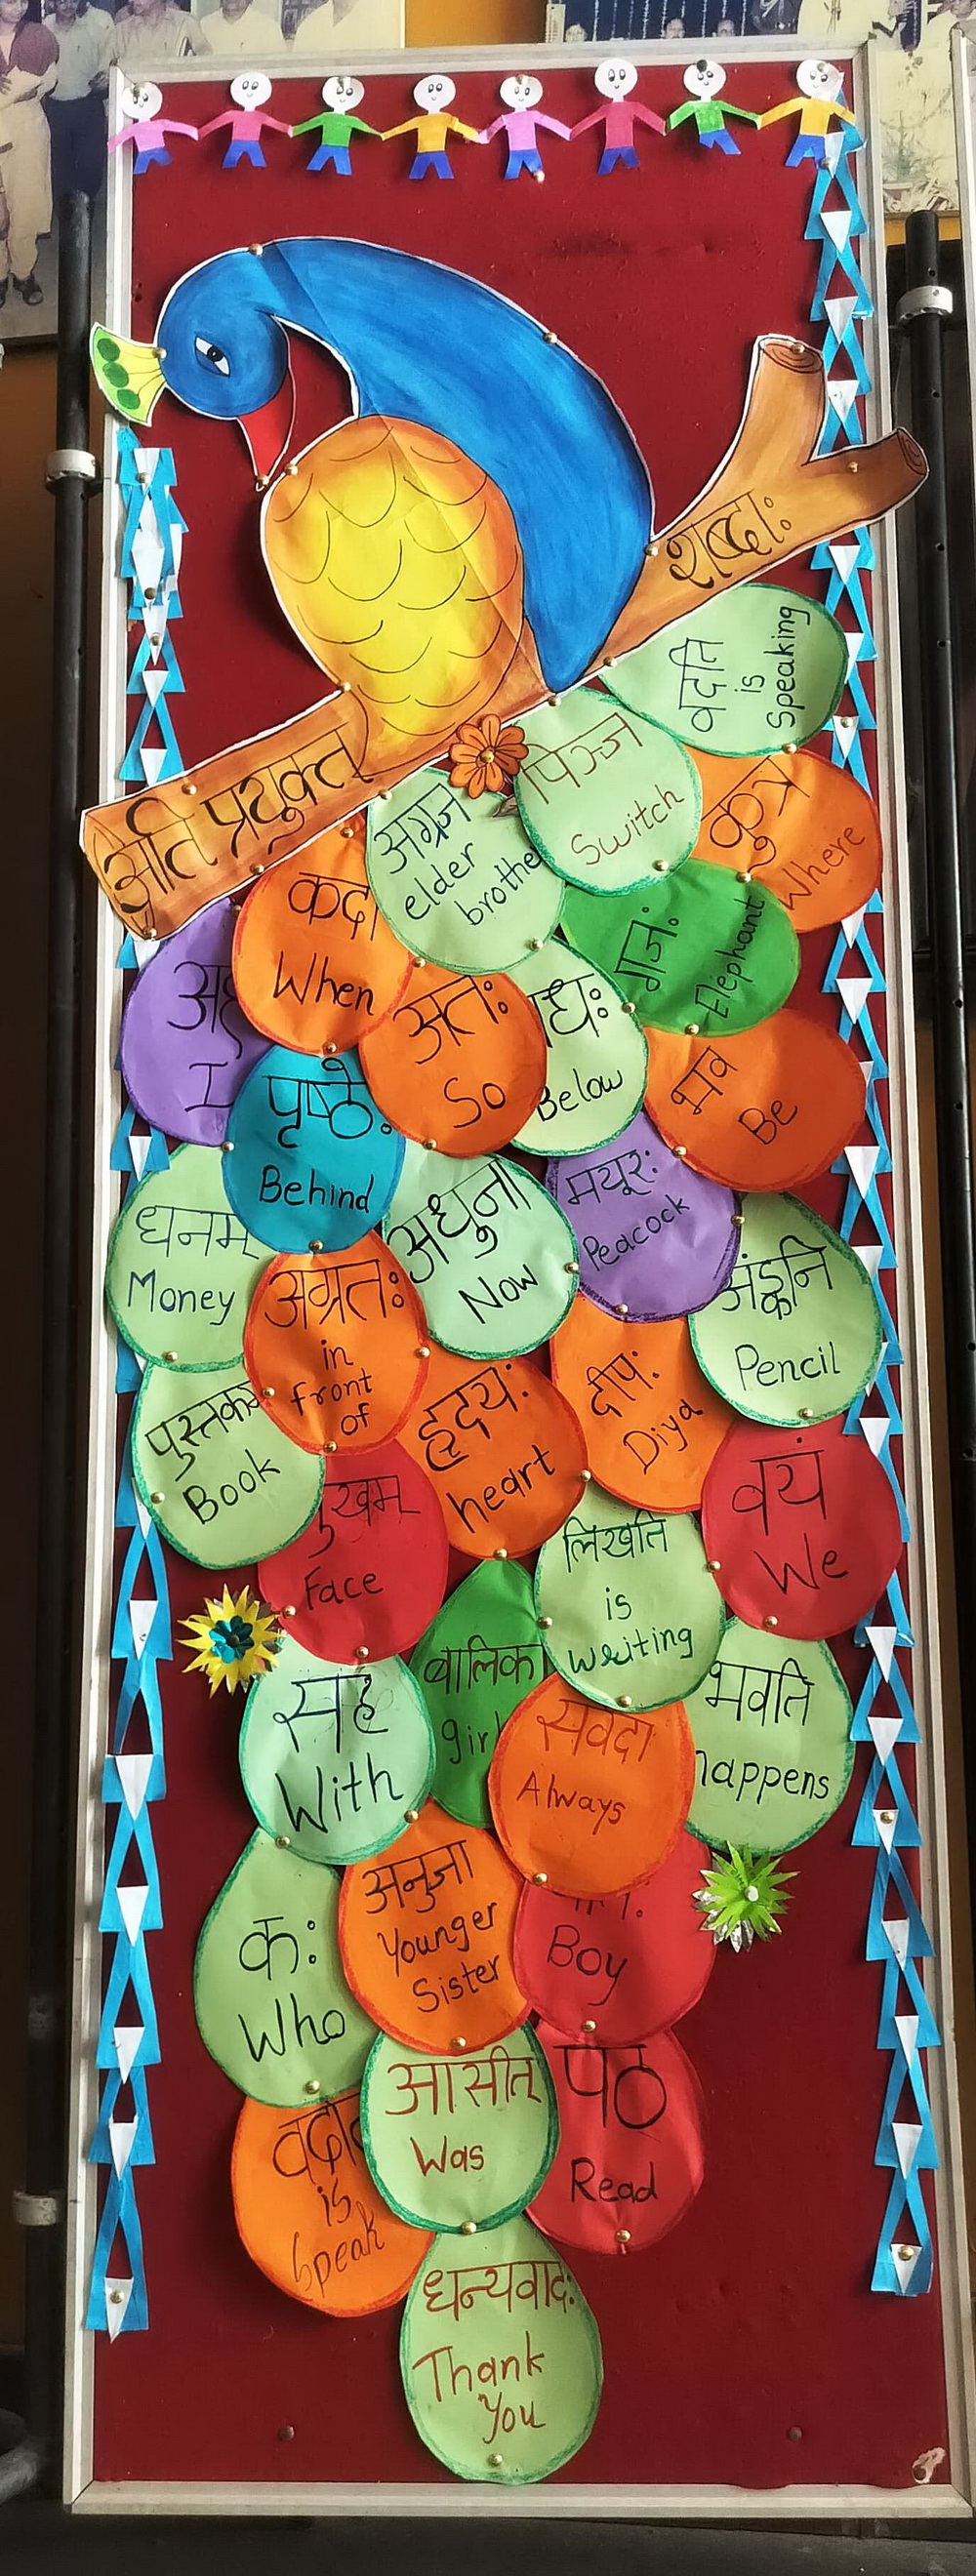 अति प्रयुक्त
शब्दाः
वदति
is
Speaking
पिञ्ज
Switch
कुत्र
Where
अग्रज
elder
brother
कदा
When
गजः
Elephant
I
अतः
So
Below
भव
Be
पृष्ठेः
Behind
मयूरः
Peacock
धनम्
Money
अधुना
Now
Pencil
अग्रतः
in
front
of
दीपः
Diya
पुस्तकम
Book
हृदयः
heart
वयं
We
Face
लिखति
is
writing
सह
With
बालिका
girl
सर्वदा
Always
भवति
happens
कः
Who
अनुजा
Younger
Sister
Boy
आसीत्
Was
पठ
Read
is
Speak
धन्यवादः
Thank
You